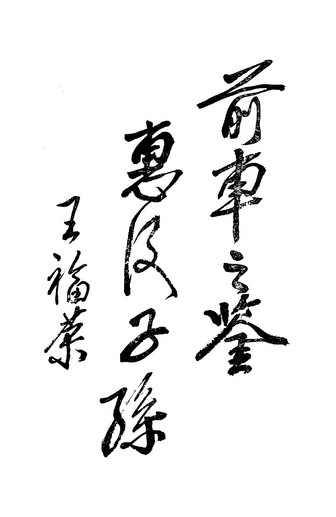 前車之鉴
惠及子孫
王福荣